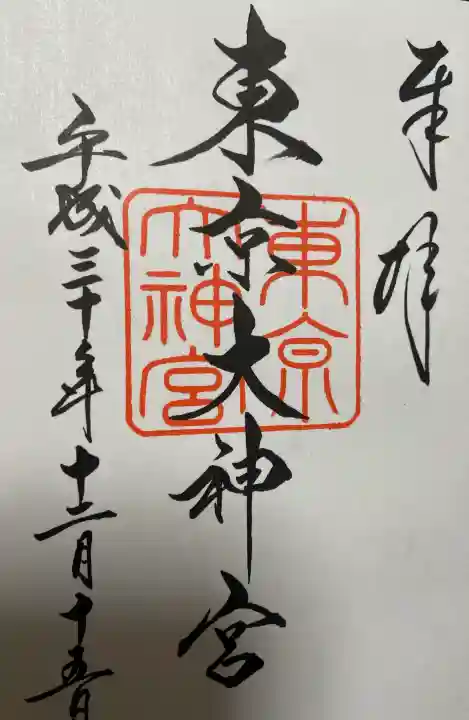 奉拝
東京大神宮
東京
大神宮
平成三十年十二月十五日